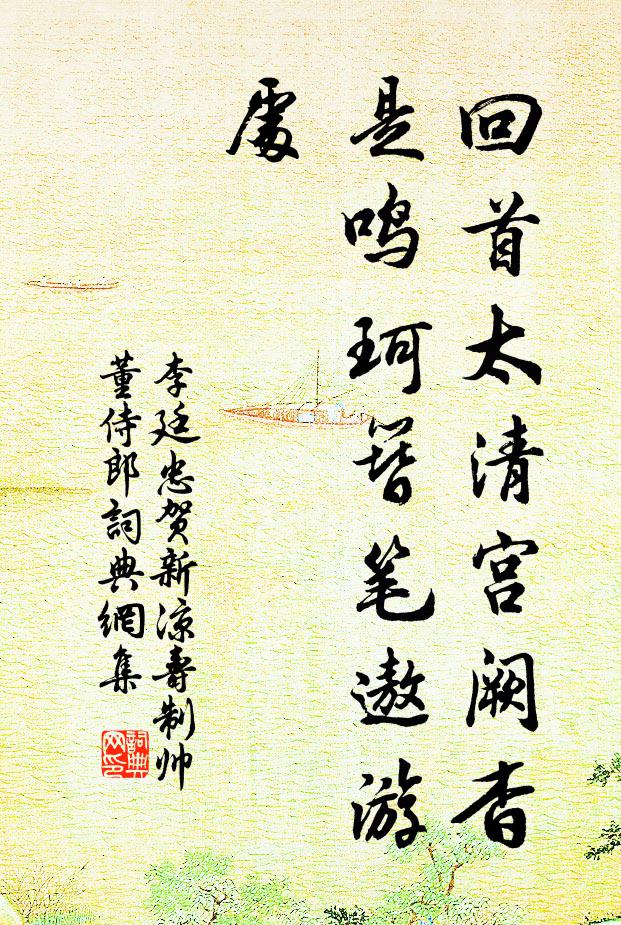 回首太清宫阙杳
是鸣珂簪笔遨游
處
李廷忠贺新凉寿制帅
董侍郎詞典網集
詞典
网印